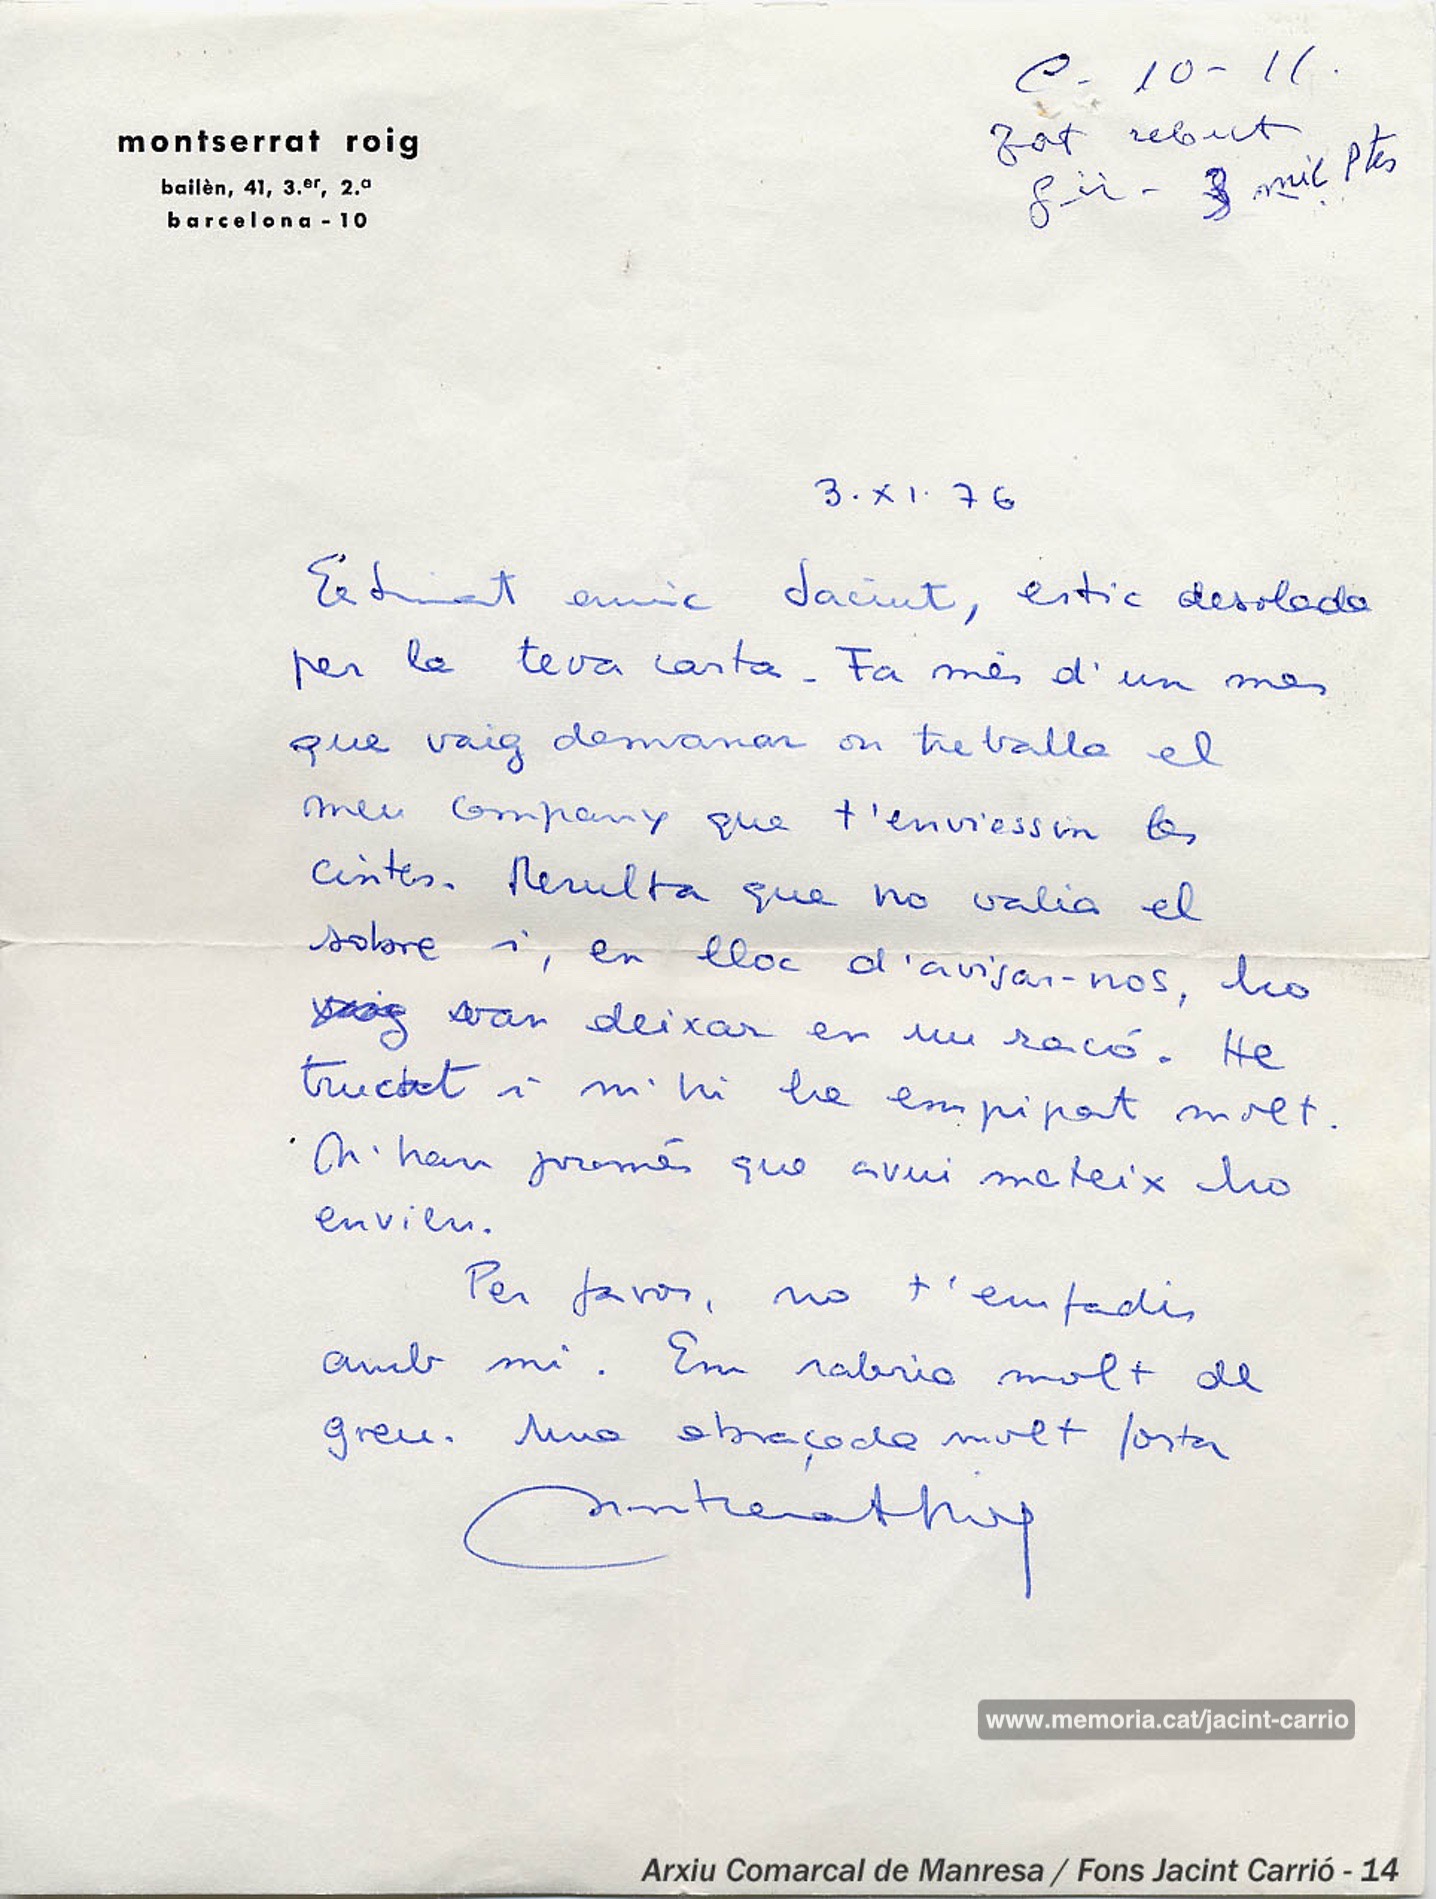 montserrat roig
bailèn, 41, 3.er, 2.a
barcelona - 10
C. 10 - 11.
Tot rebut
Gir - 3 mil Ptes
3. XI. 76
Estimat amic Jacint, estic desolada
per la teva carta. Fa més d'un mes
que vaig demanar on treballa el
meu company que t'enviessin les
cintes. Resulta que no valia el
sobre i, en lloc d'avisar-nos, ho
vaig van deixar en un racó. He
trucat i m'hi he empipat molt.
M'han promés que avui mateix ho
envien.
Per favor, no t'emfadis
amb mi. Em sabria molt de
greu. Una abraçada molt forta
Montserrat Roig
www.memoria.cat/jacint-carrio
Arxiu Comarcal de Manresa / Fons Jacint Carrió - 14